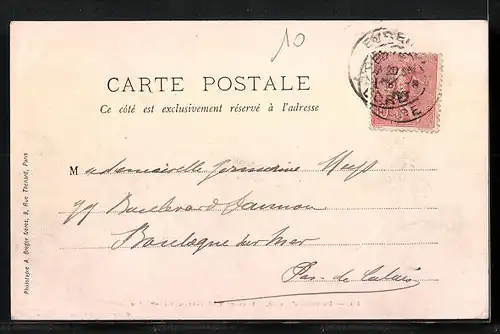 10
CARTE POSTALE
Ce côté est exclusivement réservé à l'adresse
Mademoiselle Germaine
Boulevard Daunou
Boulogne sur Mer
Pas-de-Calais
Phototypie A. Breger frères, 9, Rue Thenard, Paris